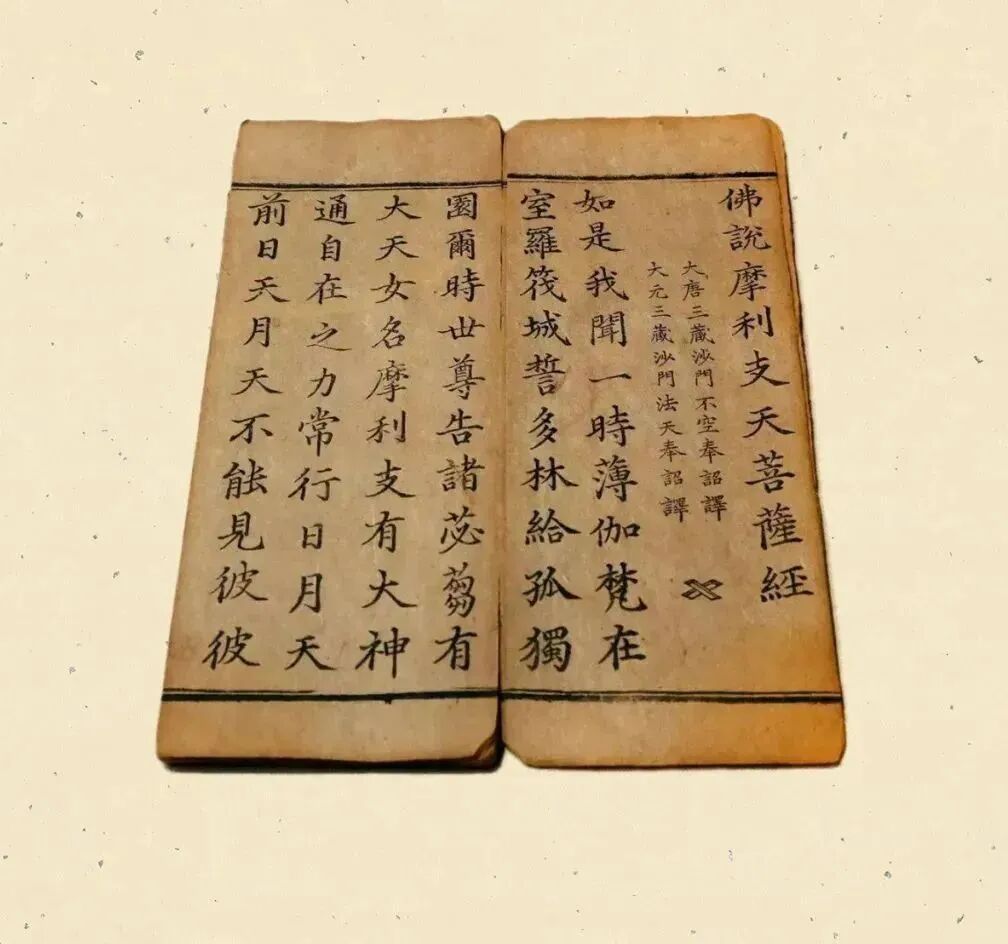 佛說摩利支天菩薩經
大唐三藏沙門不空奉詔譯
大元三藏沙門法天奉詔譯
如是我聞一時薄伽梵在
室羅筏城誓多林給孤獨
園爾時世尊告諸苾蒭有
大天女名摩利支有大神
通自在之力常行日月天
前日天月天不能見彼彼